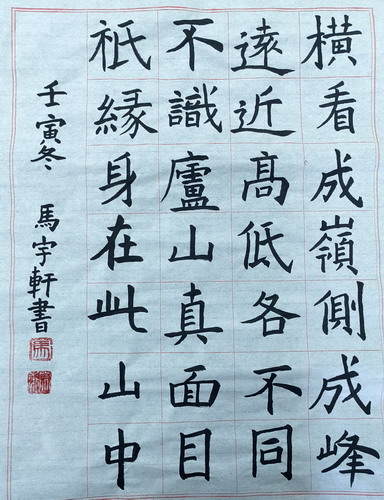 橫看成嶺側成峰
遠近高低各不同
不識廬山真面目
祇緣身在此山中
壬寅冬 馬宇軒書